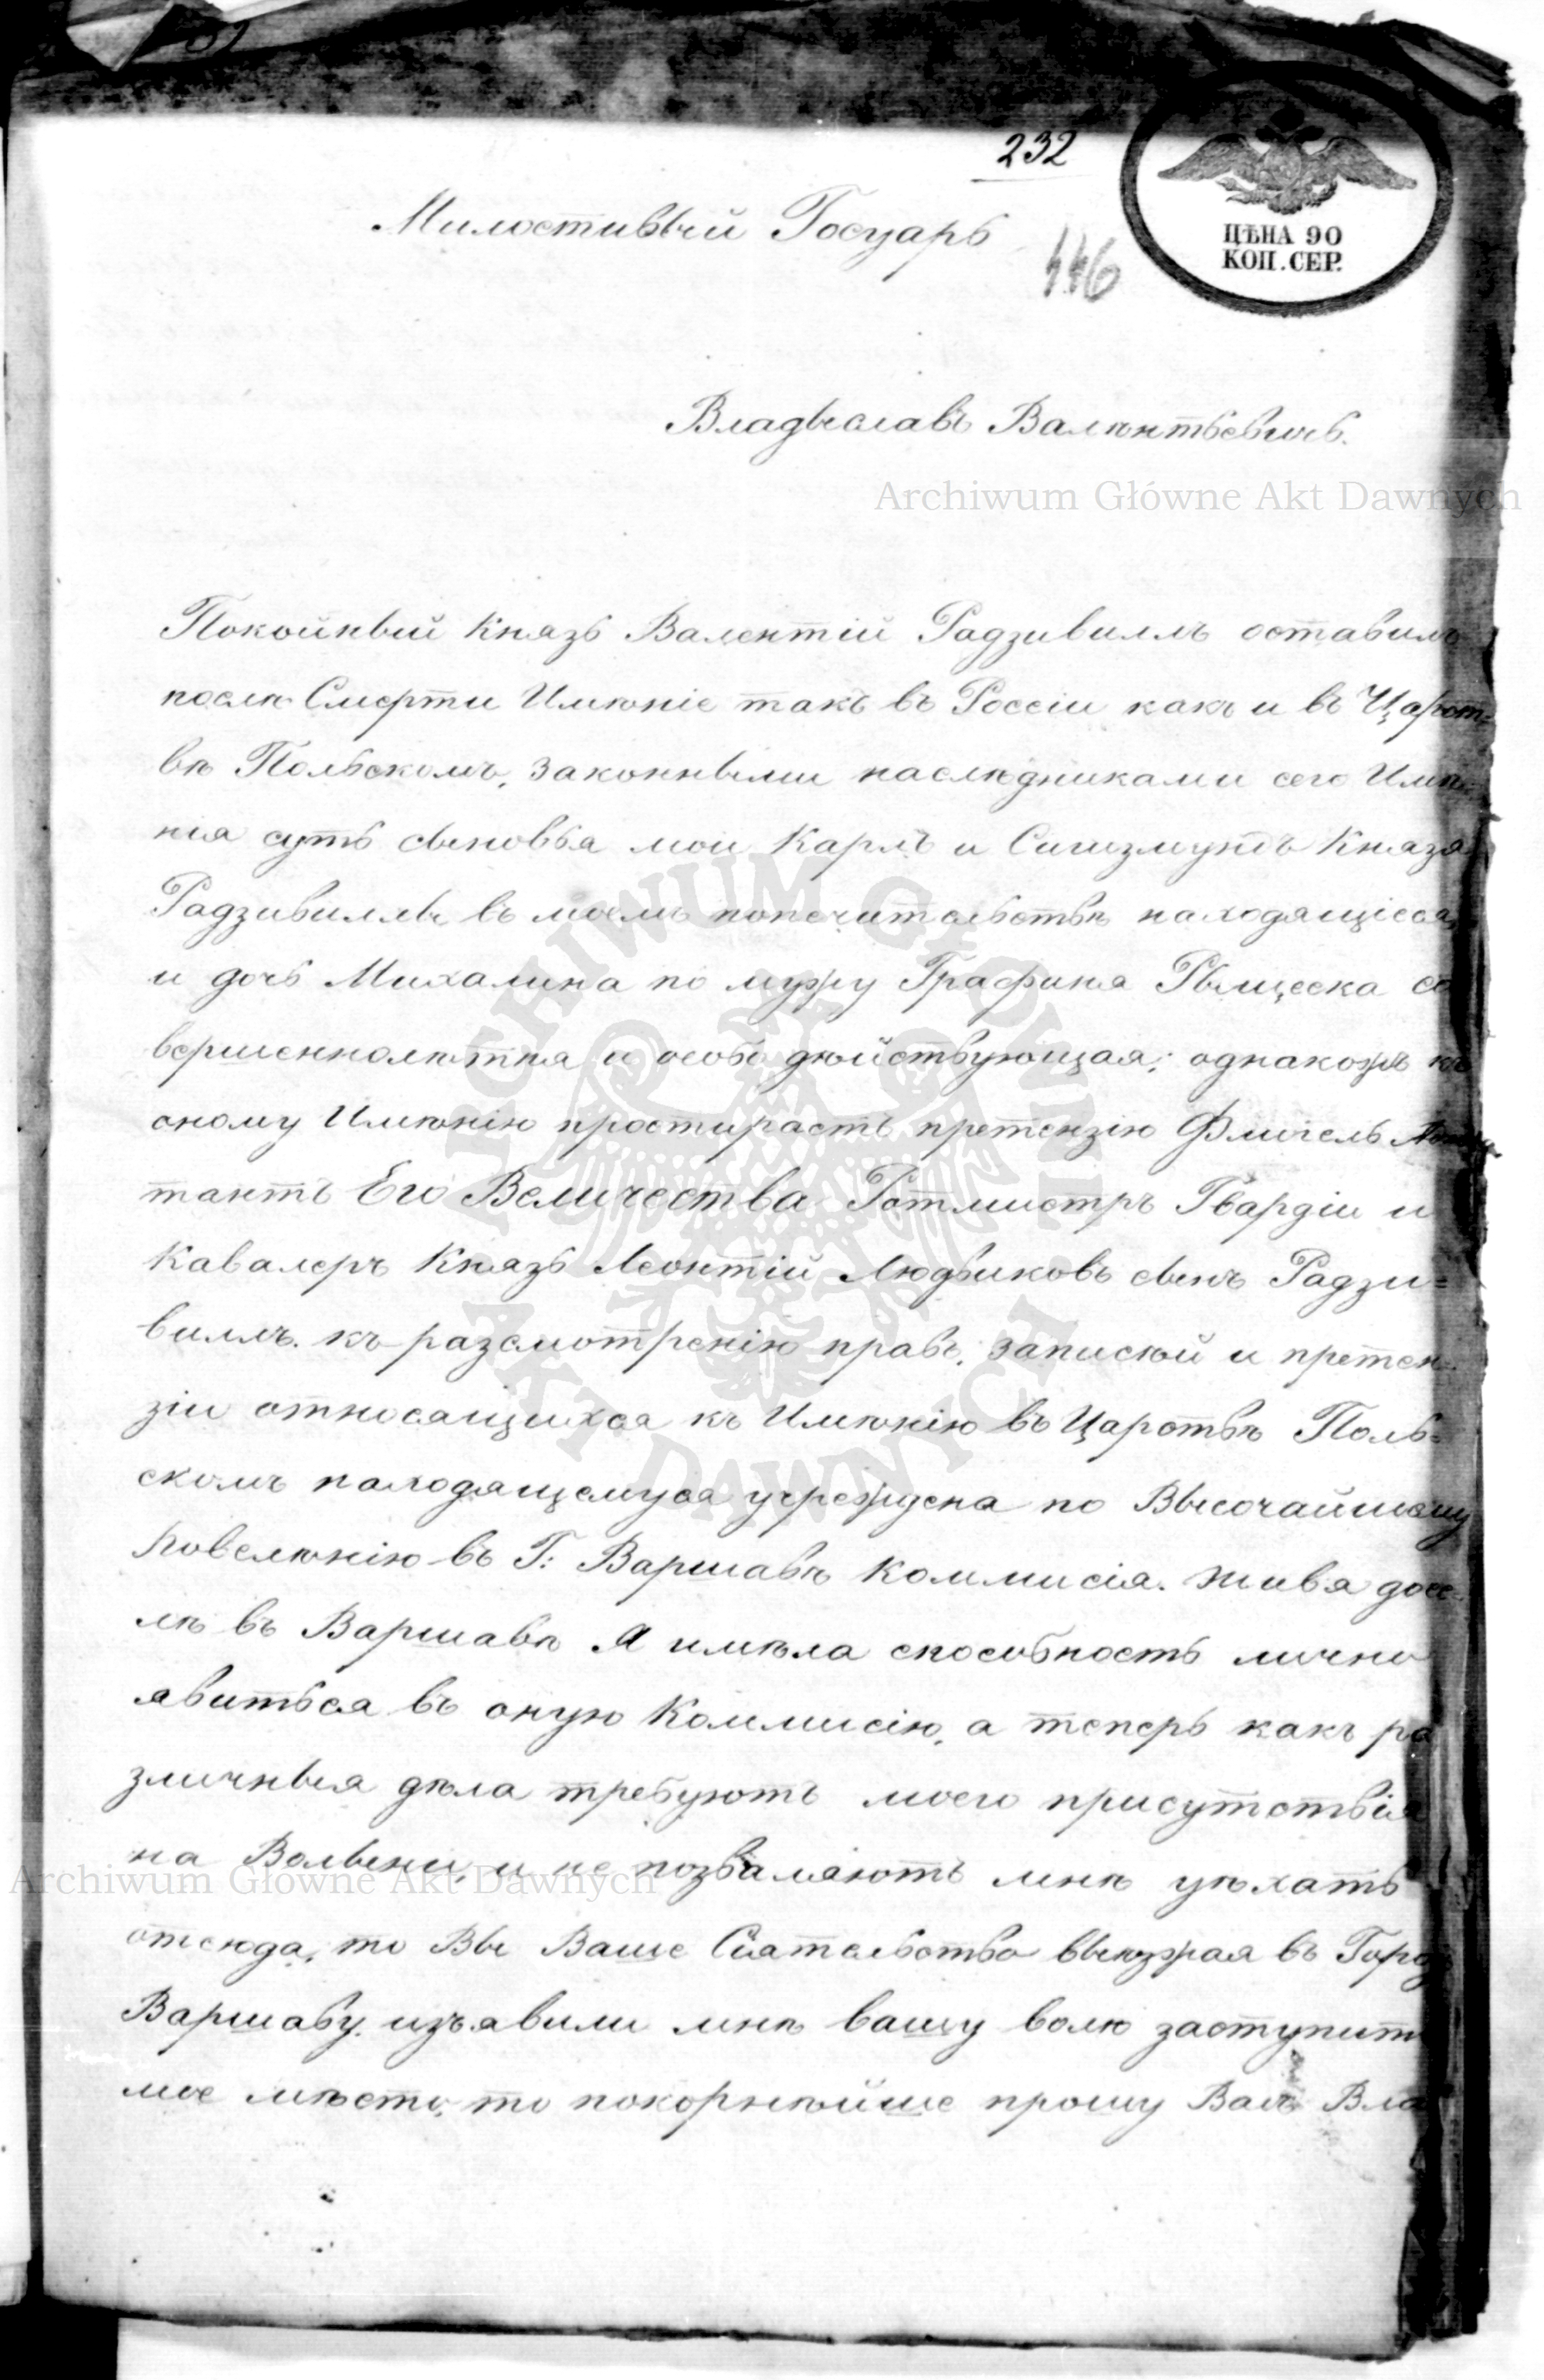 232
ЦѢНА 90
КОП. СЕР.
Милостивый Госуарь
146
Владыславъ Валѣнтьевичь.
Archiwum Główne Akt Dawnych
Покойный Князь Валентій Радзивиллъ оставилъ
послѣ Смерти Имѣніе такъ въ Россіи какъ и въ Царст=
вѣ Польскомъ, Законными наслѣдниками сего Имѣ=
нія суть сыновья мои Карлъ и Сигизмундъ Князья
Радзивиллы въ моемъ попечительствѣ находящіеся,
и дочь Михалина по мужу Графиня Рыщеска со
вершеннолѣтняя и особо дѣйствующая; однакожъ къ
оному Имѣнію простираетъ претензію Флигель Адъю
тантъ Его Величества Ротмистръ Гвардіи и
Кавалеръ Князь Леонтій Людвиковъ сынъ Радзи=
виллъ. къ разсмотренію правъ, записюй и претен=
зіи относящихся къ Имѣнію въ Царствѣ Поль=
скомъ находящемуся учреждена по Высочайшему
повелѣнію въ Г: Варшавѣ Коммисія. Живя досе=
лѣ въ Варшавѣ Я имѣла способность лично
явиться въ оную Коммисію, а теперь какъ ра
зличныя дѣла требуютъ моего присутствія
на Волыни, и не позваляютъ мнѣ уѣхать
Archiwum Główne Akt Dawnych
отсюда, то Вы Ваше Сіятельство выѣзжая въ Городъ
Варшаву изъявили мнѣ вашу волю заступить
мое мѣсто, то покорнѣйше прошу Васъ Вла
ARCHIWUM GŁÓWNE
AKT DAWNYCH